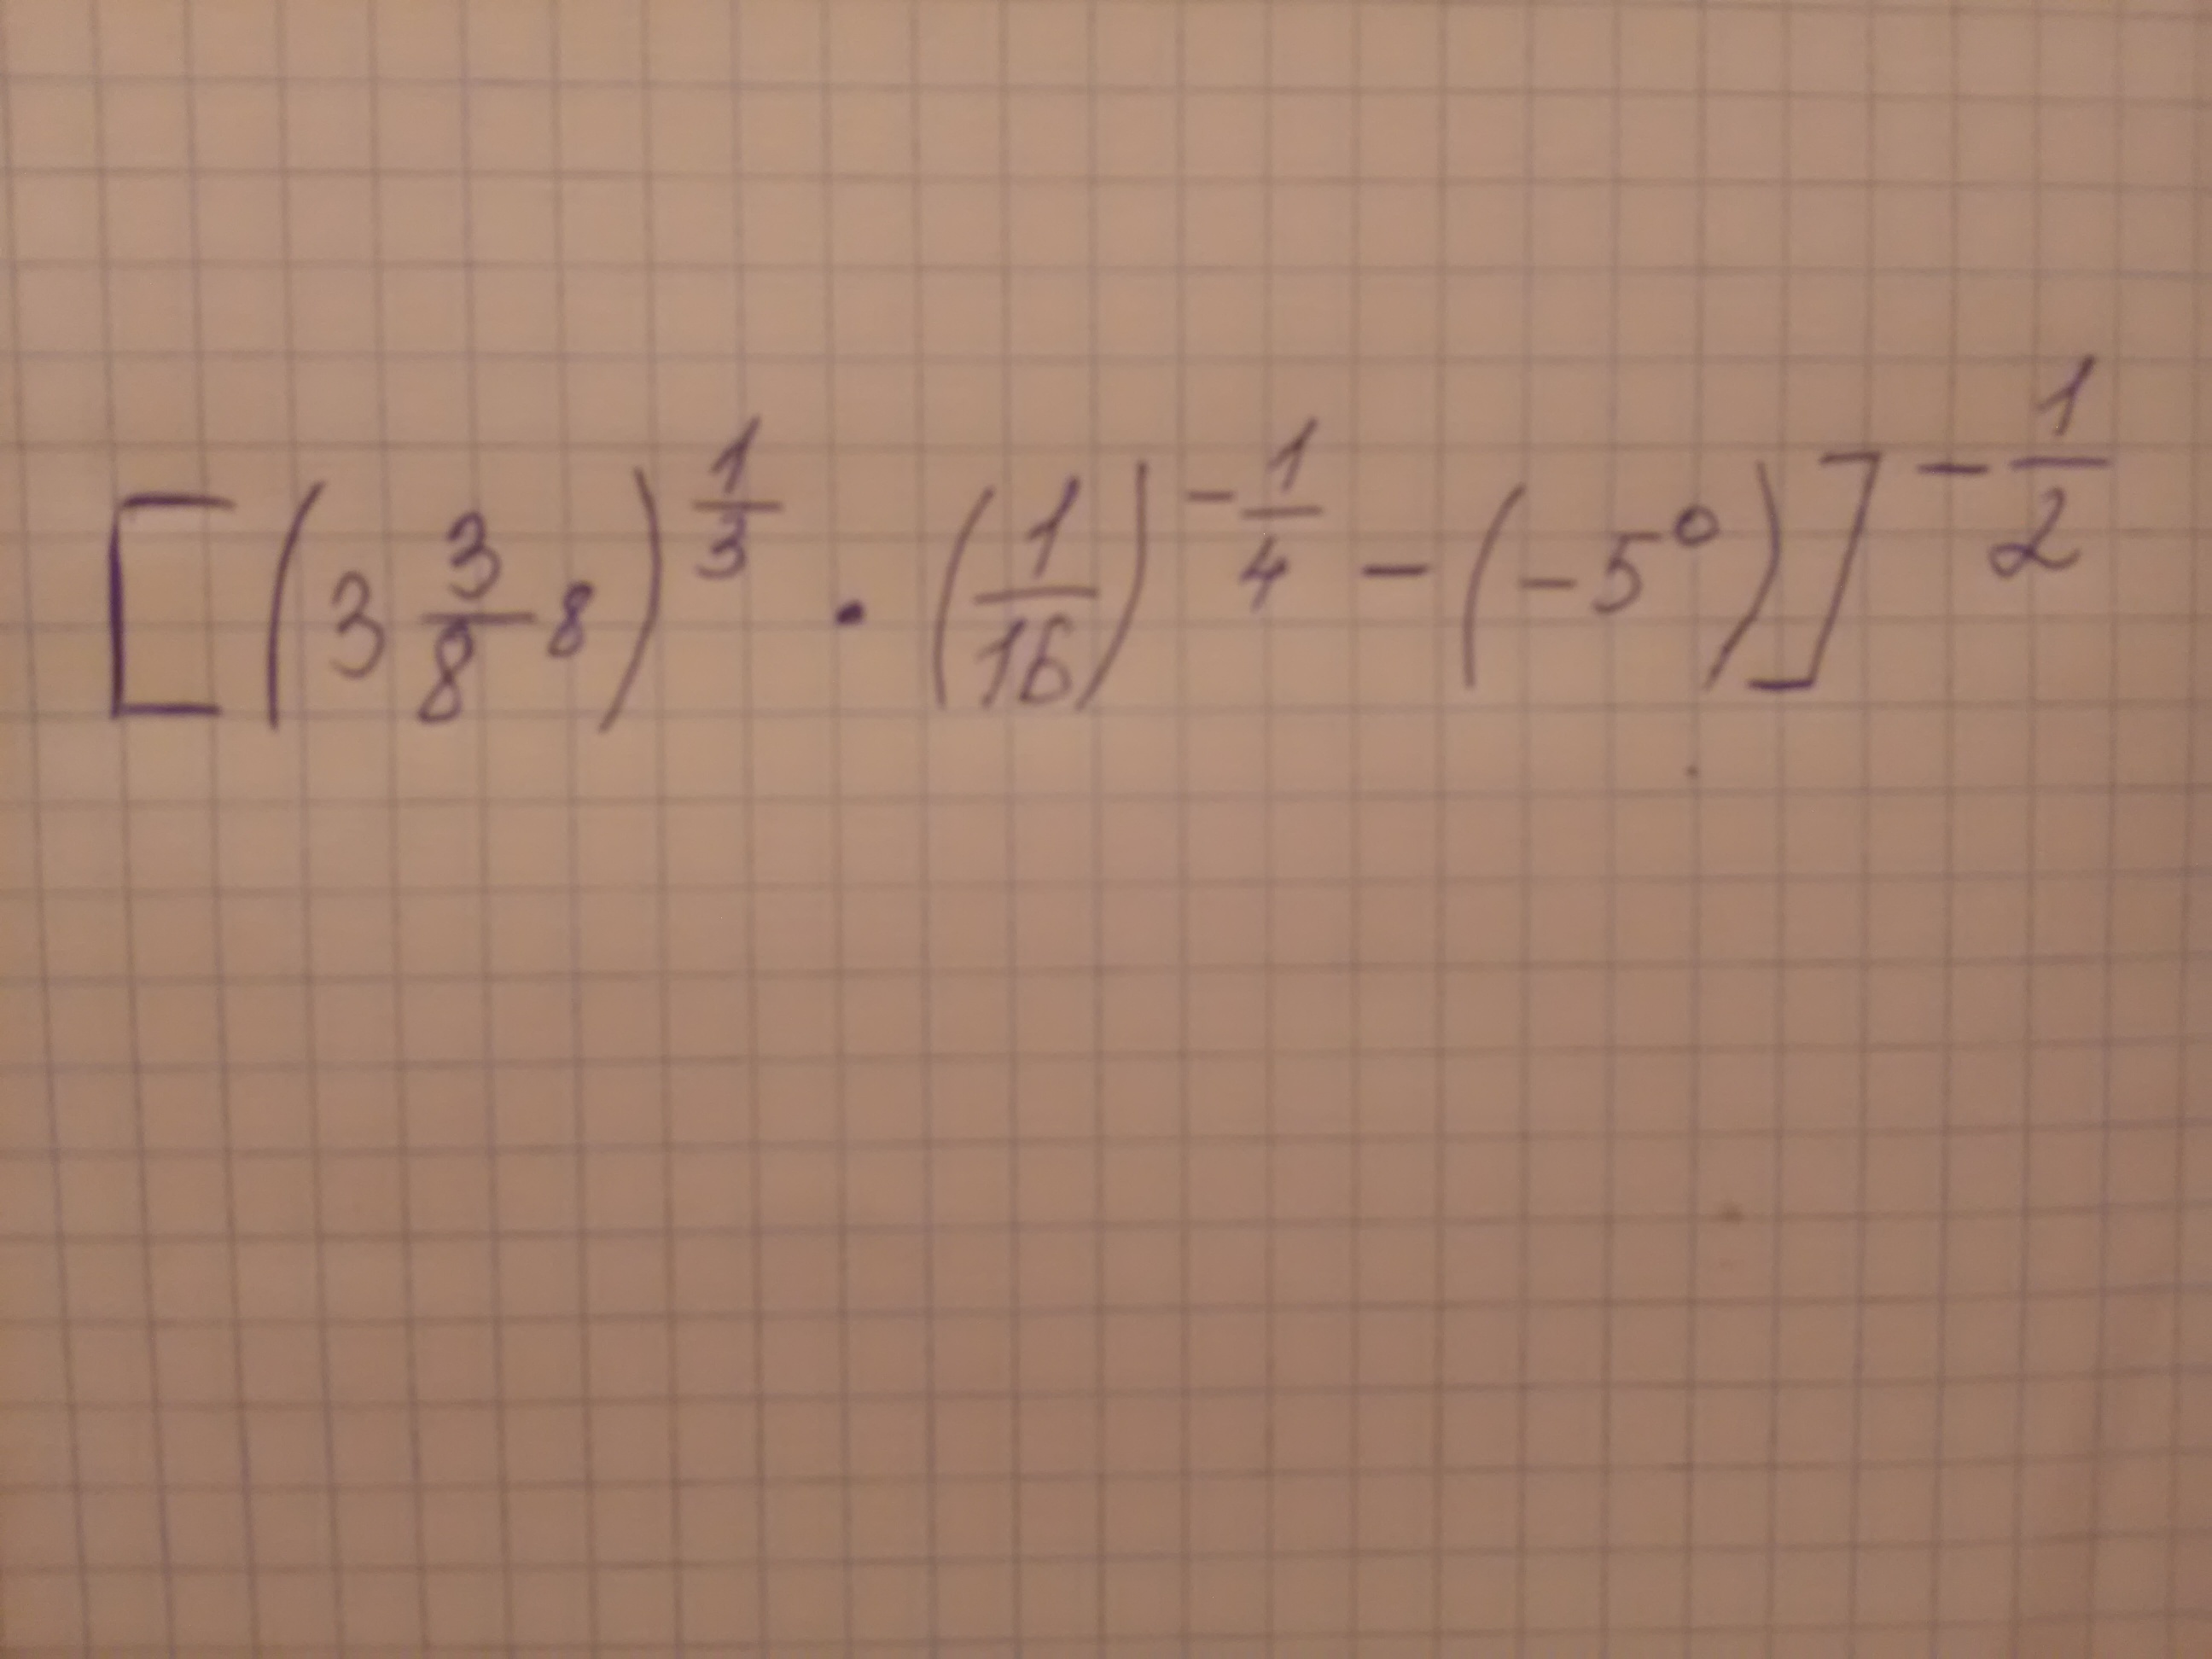 [(3 3/8 8)^(1/3) · (1/16)^(-1/4) - (-5^0)]^(-1/2)